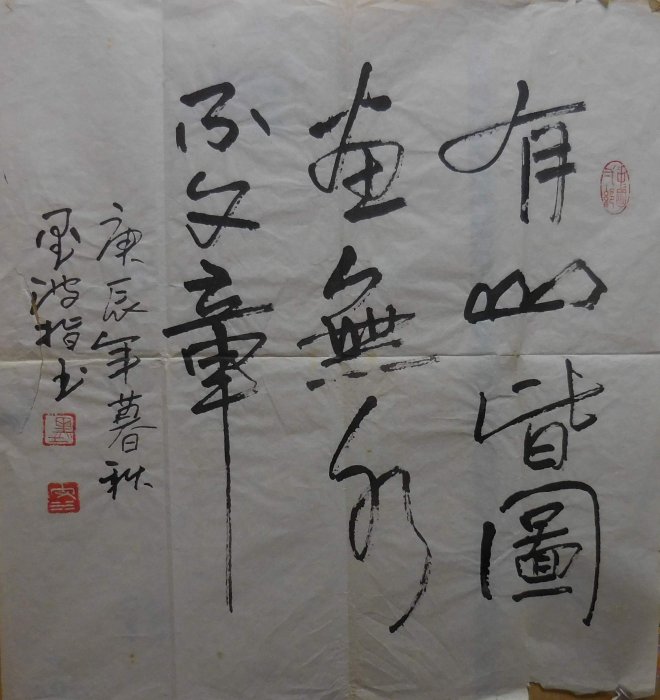 有山皆圖
畫無水
不文章
庚辰年暮秋
墨波指书